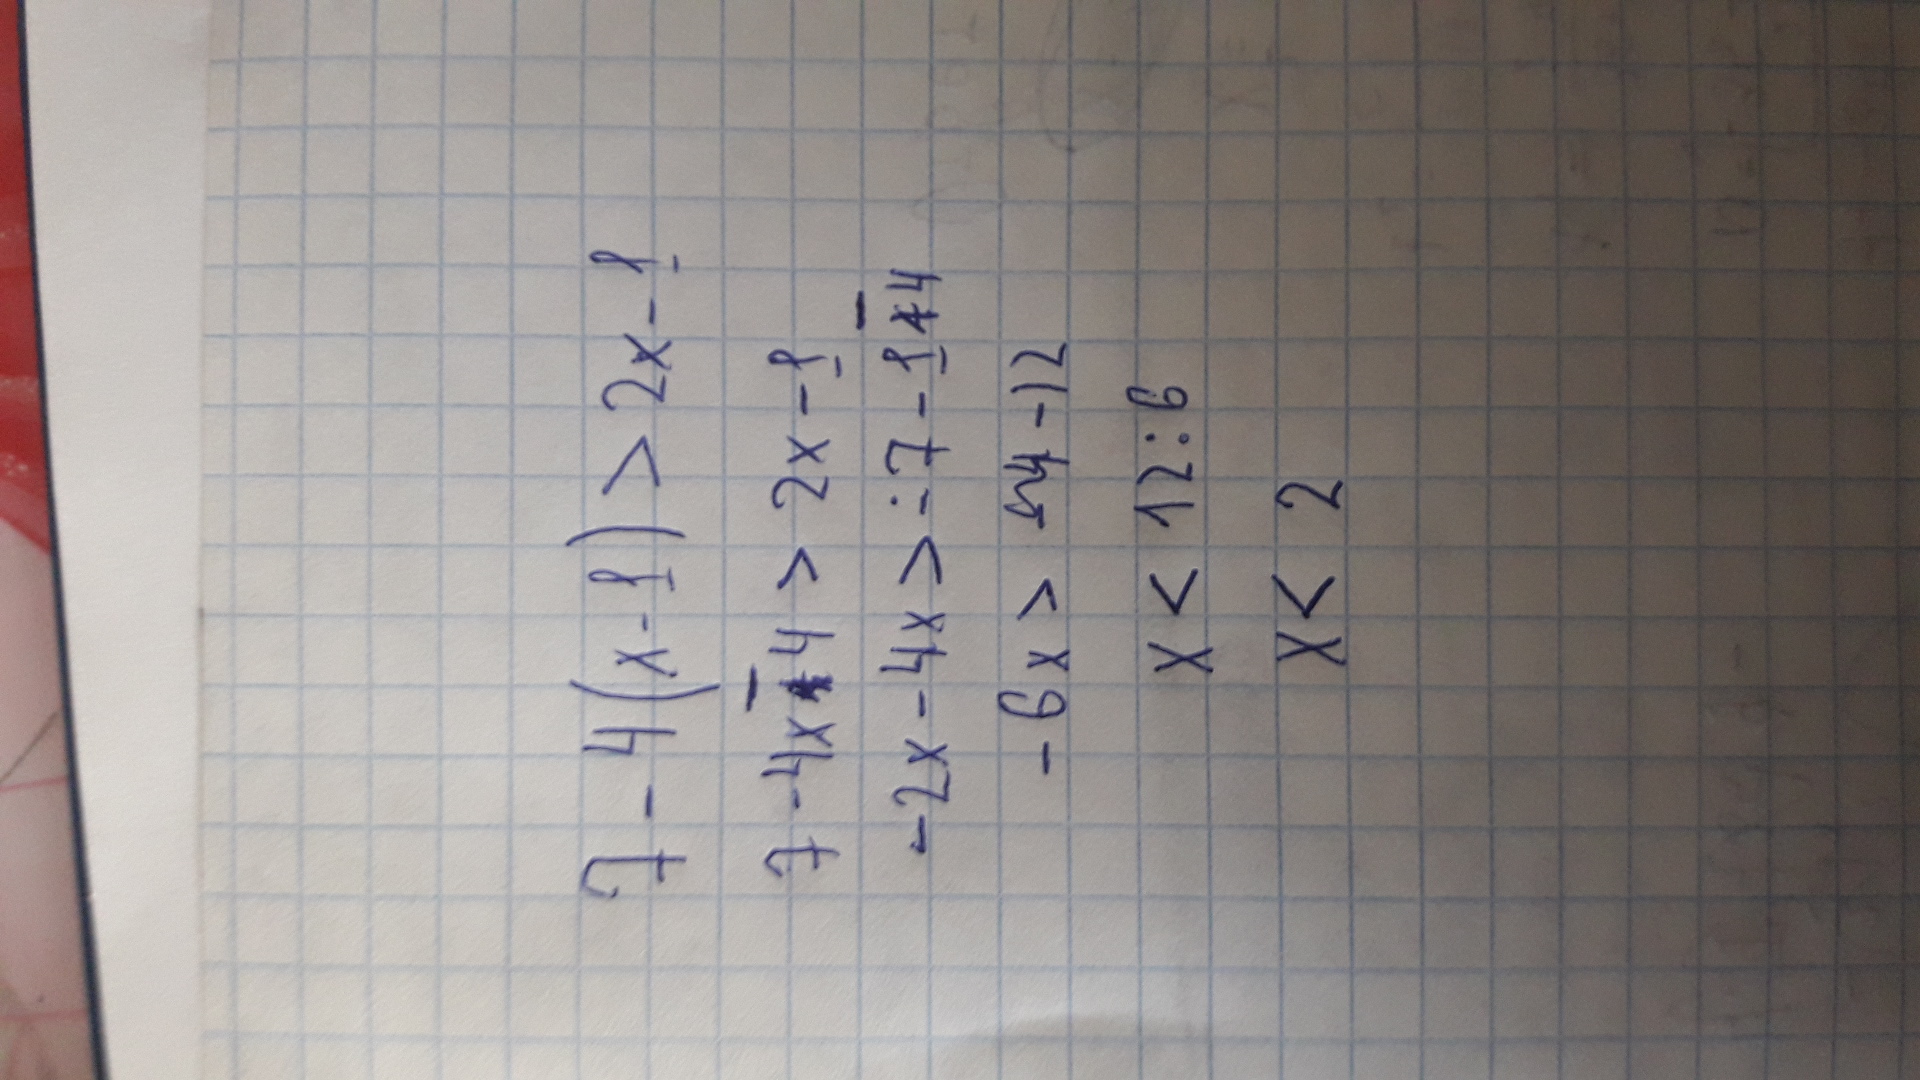 7 - 4(x-1) > 2x - 1
7 - 4x 4 > 2x - 1
-2x - 4x > -7 - 1 - 4
-6x > -12
x < 12:6
x < 2